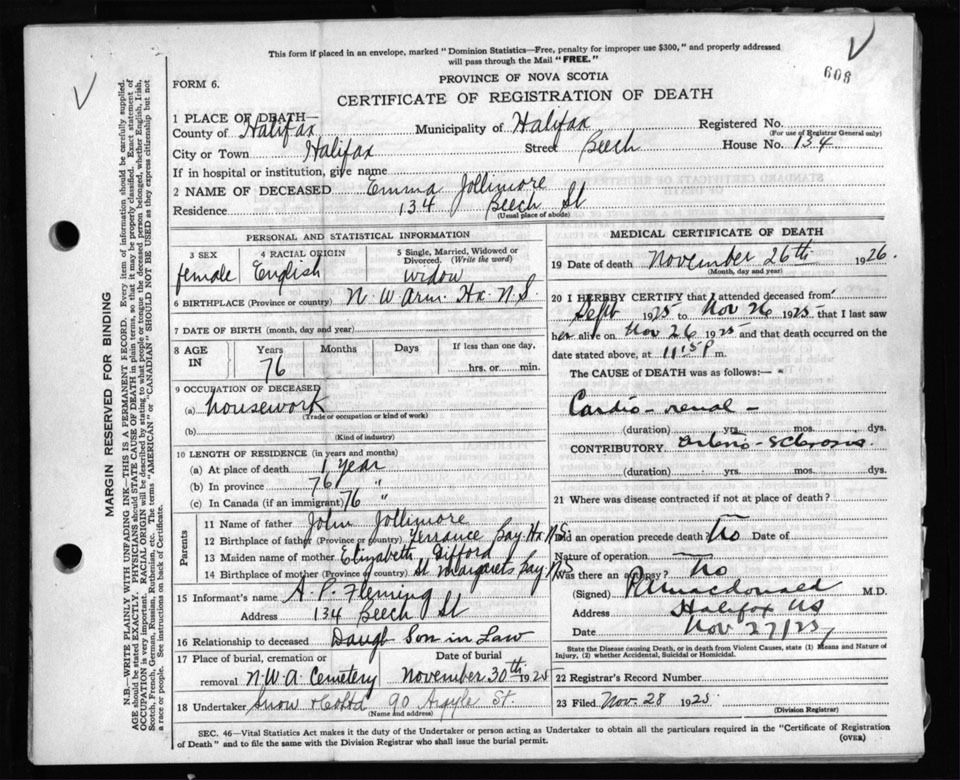 This form if placed in an envelope, marked "Dominion Statistics—Free, penalty for improper use $300," and properly addressed
will pass through the Mail "FREE."
608
FORM 6.
PROVINCE OF NOVA SCOTIA
CERTIFICATE OF REGISTRATION OF DEATH
1 PLACE OF DEATH—
County of Halifax Municipality of Halifax Registered No.
(For use of Registrar General only)
City or Town Halifax Street Beech House No. 134
If in hospital or institution, give name
2 NAME OF DECEASED Emma Jollimore
Residence 134 Beech St
(Usual place of abode)
PERSONAL AND STATISTICAL INFORMATION
3 SEX 4 RACIAL ORIGIN 5 Single, Married, Widowed or
Divorced. (Write the word)
female English widow
6 BIRTHPLACE (Province or country) N. W. Arm. Hx. N.S.
7 DATE OF BIRTH (month, day and year)
8 AGE IN Years Months Days If less than one day,
76 hrs. or min.
9 OCCUPATION OF DECEASED
(a) housework
(Trade or occupation or kind of work)
(b)
(Kind of industry)
10 LENGTH OF RESIDENCE (in years and months)
(a) At place of death 1 year
(b) In province 76 "
(c) In Canada (if an immigrant) 76 "
Parents
11 Name of father John Jollimore
12 Birthplace of father (Province or country) Terrance Bay Hx N.S.
13 Maiden name of mother Elizabeth Gifford
14 Birthplace of mother (Province or country) St Margarets Bay N.S
15 Informant's name A. P. Fleming
Address 134 Beech St
16 Relationship to deceased Daugh Son in Law
17 Place of burial, cremation or Date of burial
removal N.W.A. Cemetery November 30th 1925
18 Undertaker Snow & Co Ltd 90 Argyle St.
(Name and address)
MEDICAL CERTIFICATE OF DEATH
19 DATE OF DEATH November 26th 1926.
(Month, day and year)
20 I HEREBY CERTIFY that I attended deceased from
Sept 1925 to Nov 26 1925 that I last saw
her alive on Nov 26 1925 and that death occurred on the
date stated above, at 11:15 P m.
The CAUSE of DEATH was as follows:—
Cardio-renal-
(duration) yrs. mos. dys.
CONTRIBUTORY arterio-sclerosis.
(duration) yrs. mos. dys.
21 Where was disease contracted if not at place of death?
Did an operation precede death? No Date of
Nature of operation
Was there an autopsy? No
(Signed) Macdonald M.D.
Address Halifax NS
Date Nov 27/25
State the Disease causing Death, or in death from Violent Causes, state (1) Means and Nature of
Injury, (2) whether Accidental, Suicidal or Homicidal.
22 Registrar's Record Number
23 Filed Nov. 28 1925
(Division Registrar)
SEC. 46—Vital Statistics Act makes it the duty of the Undertaker or person acting as Undertaker to obtain all the particulars required in the "Certificate of Registration
of Death" and to file the same with the Division Registrar who shall issue the burial permit. (OVER)
MARGIN RESERVED FOR BINDING
N.B.—WRITE PLAINLY WITH UNFADING INK—THIS IS A PERMANENT RECORD. Every item of information should be carefully supplied.
AGE should be stated EXACTLY. PHYSICIANS should STATE CAUSE OF DEATH in plain terms, so that it may be properly classified. Exact statement of
OCCUPATION is very important. RACIAL ORIGIN will be described by stating to what people or tongue the deceased person belonged, whether English, Irish,
Scotch, French, German, Russian, Ruthenian, etc. The terms "AMERICAN" or "CANADIAN" SHOULD NOT BE USED as they express citizenship but not
a race or people. See instructions on back of Certificate.